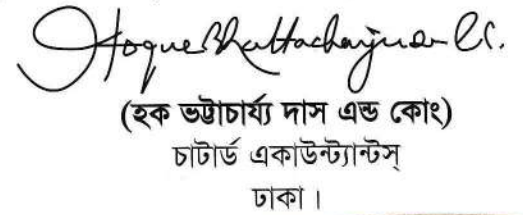 Hoque Bhattacharjee Das & Co.
(হক ভট্টাচার্য্য দাস এন্ড কোং)
চাটার্ড একাউন্ট্যান্টস্
ঢাকা।